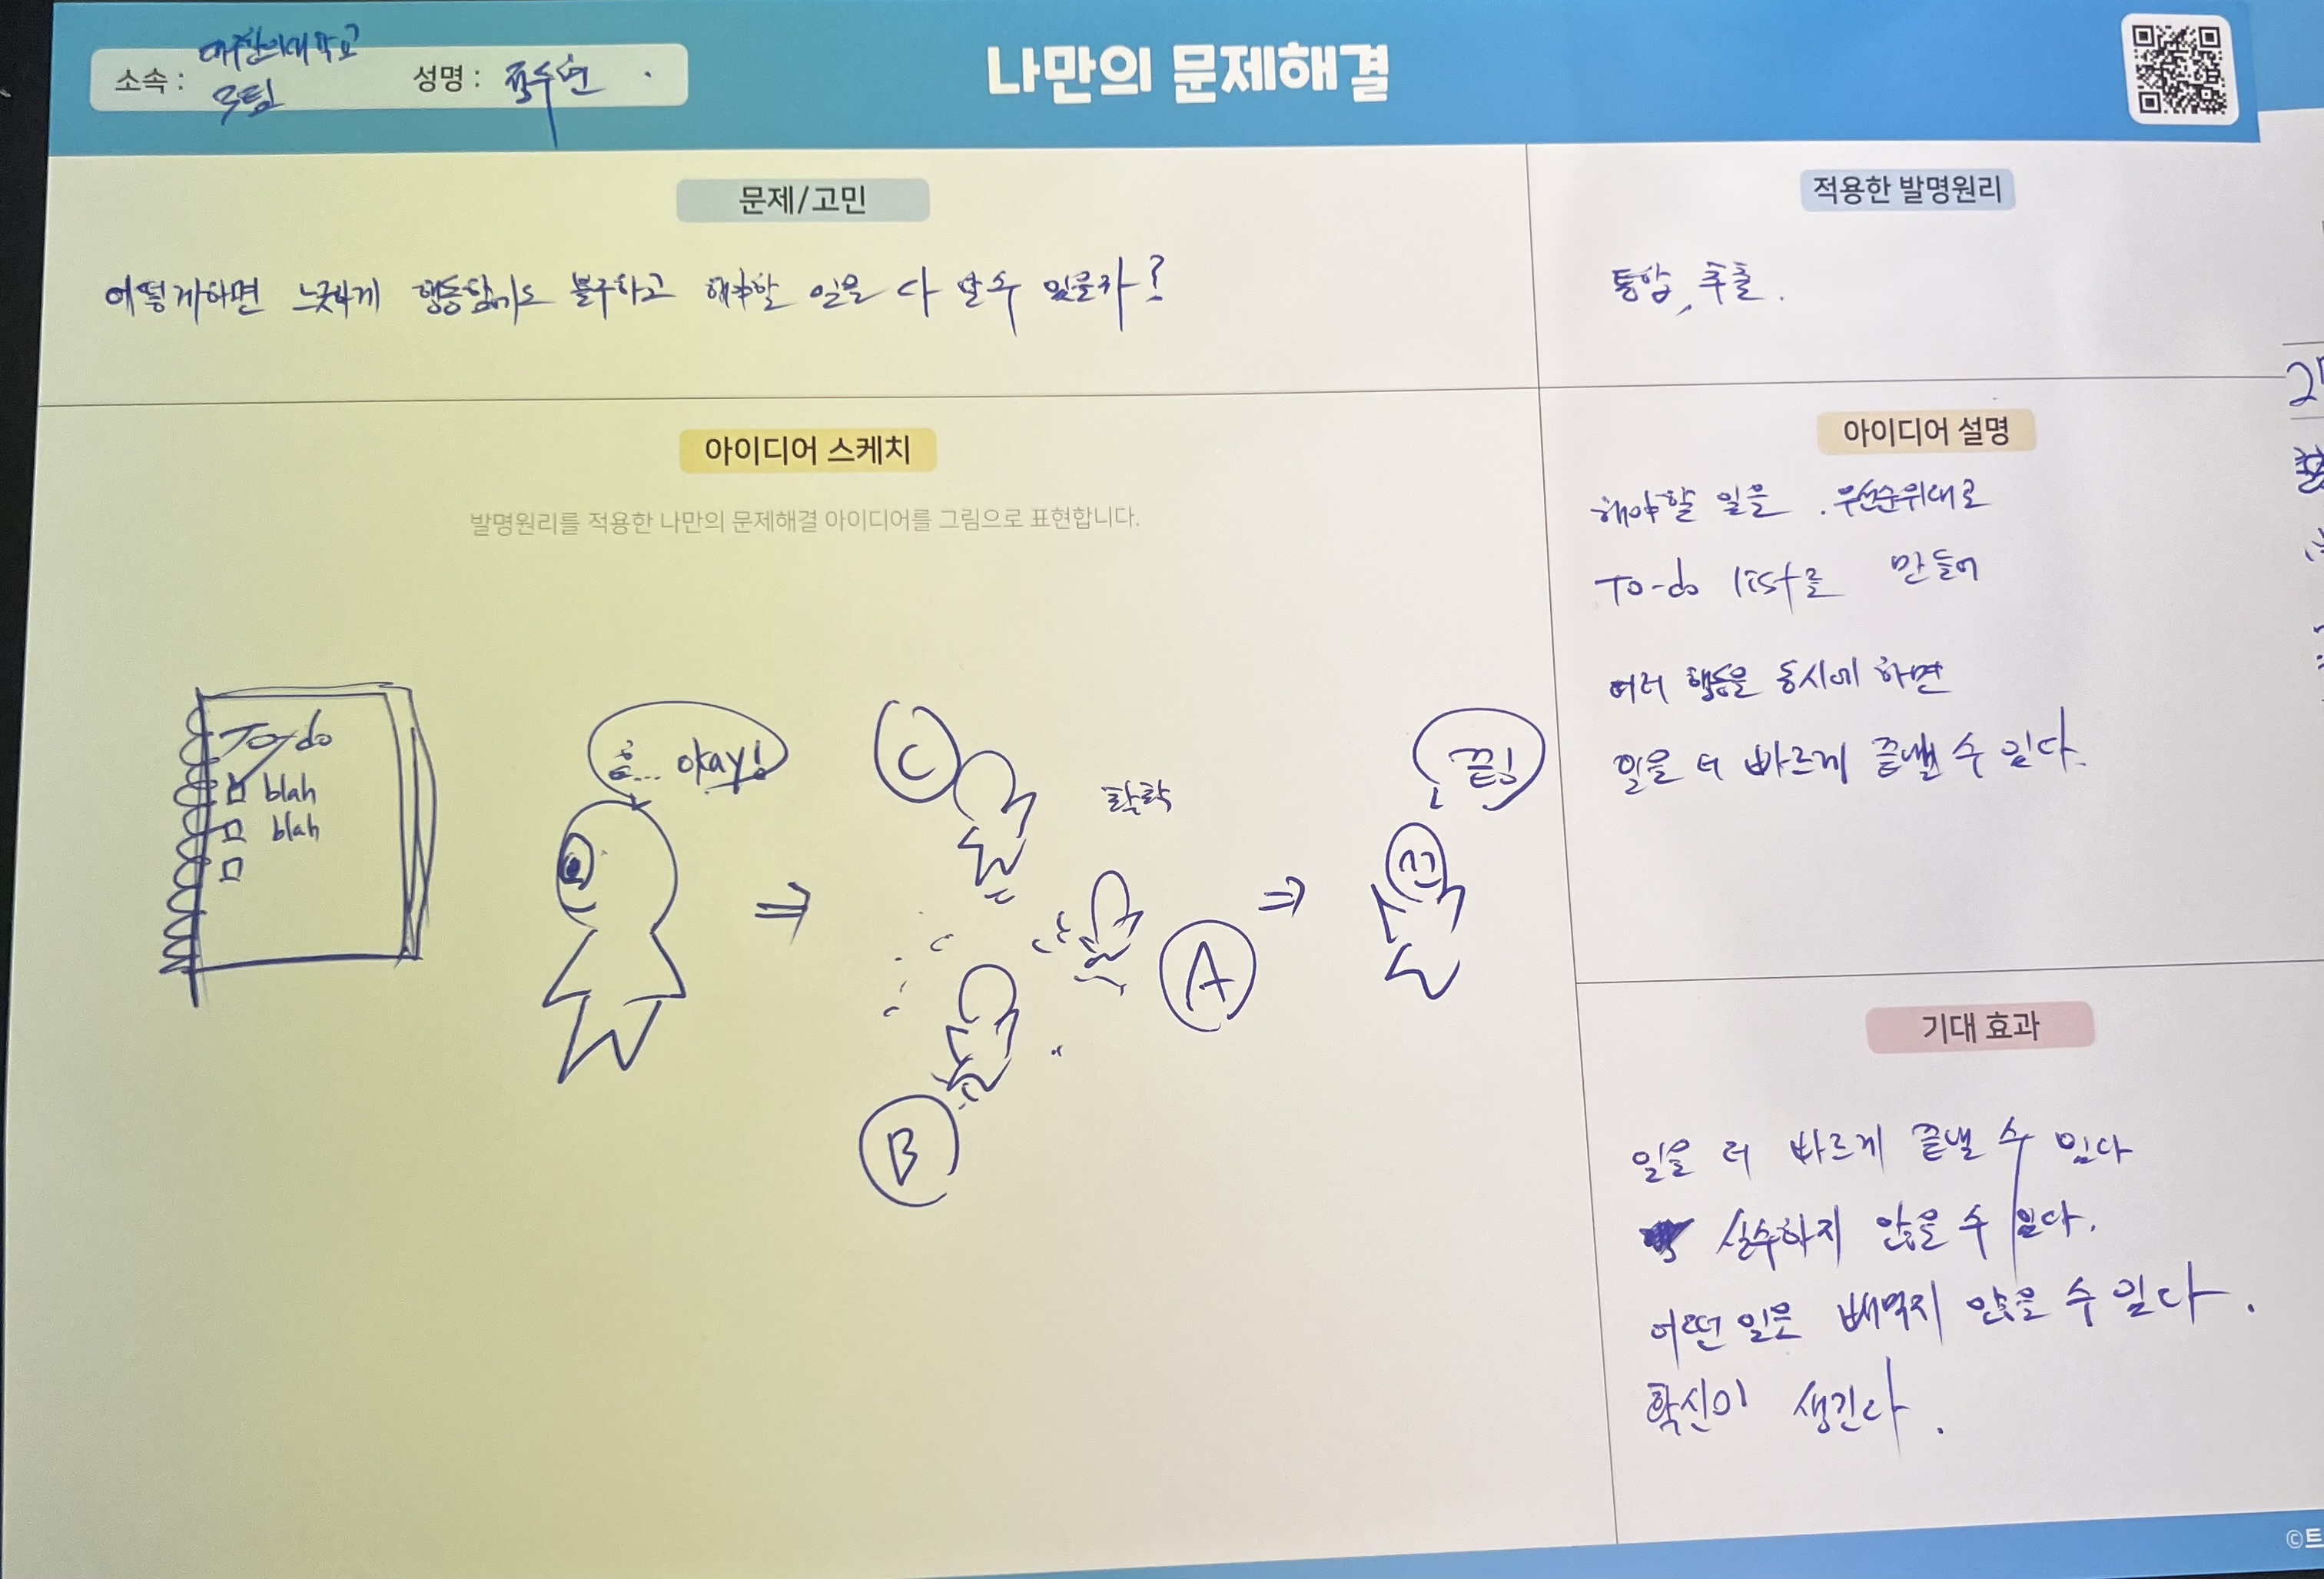 나만의 문제해결
소속 :
대구한의대학교
성명 :
문제/고민
어떻게하면 느긋하게 행동함에도 불구하고 해야할 일을 다 할 수 있을까?
적용한 발명원리
통합, 추출.
아이디어 스케치
발명원리를 적용한 나만의 문제해결 아이디어를 그림으로 표현합니다.
To-do
blah
blah
음... okay!
C
탁탁
A
B
끝!
아이디어 설명
해야할 일을 우선순위대로
To-do list를 만들어
여러 행동을 동시에 하면
일을 더 빠르게 끝낼 수 있다.
기대 효과
일을 더 빠르게 끝낼 수 있다
실수하지 않을 수 있다.
어떤 일을 빼먹지 않을 수 있다.
확신이 생긴다.
©트